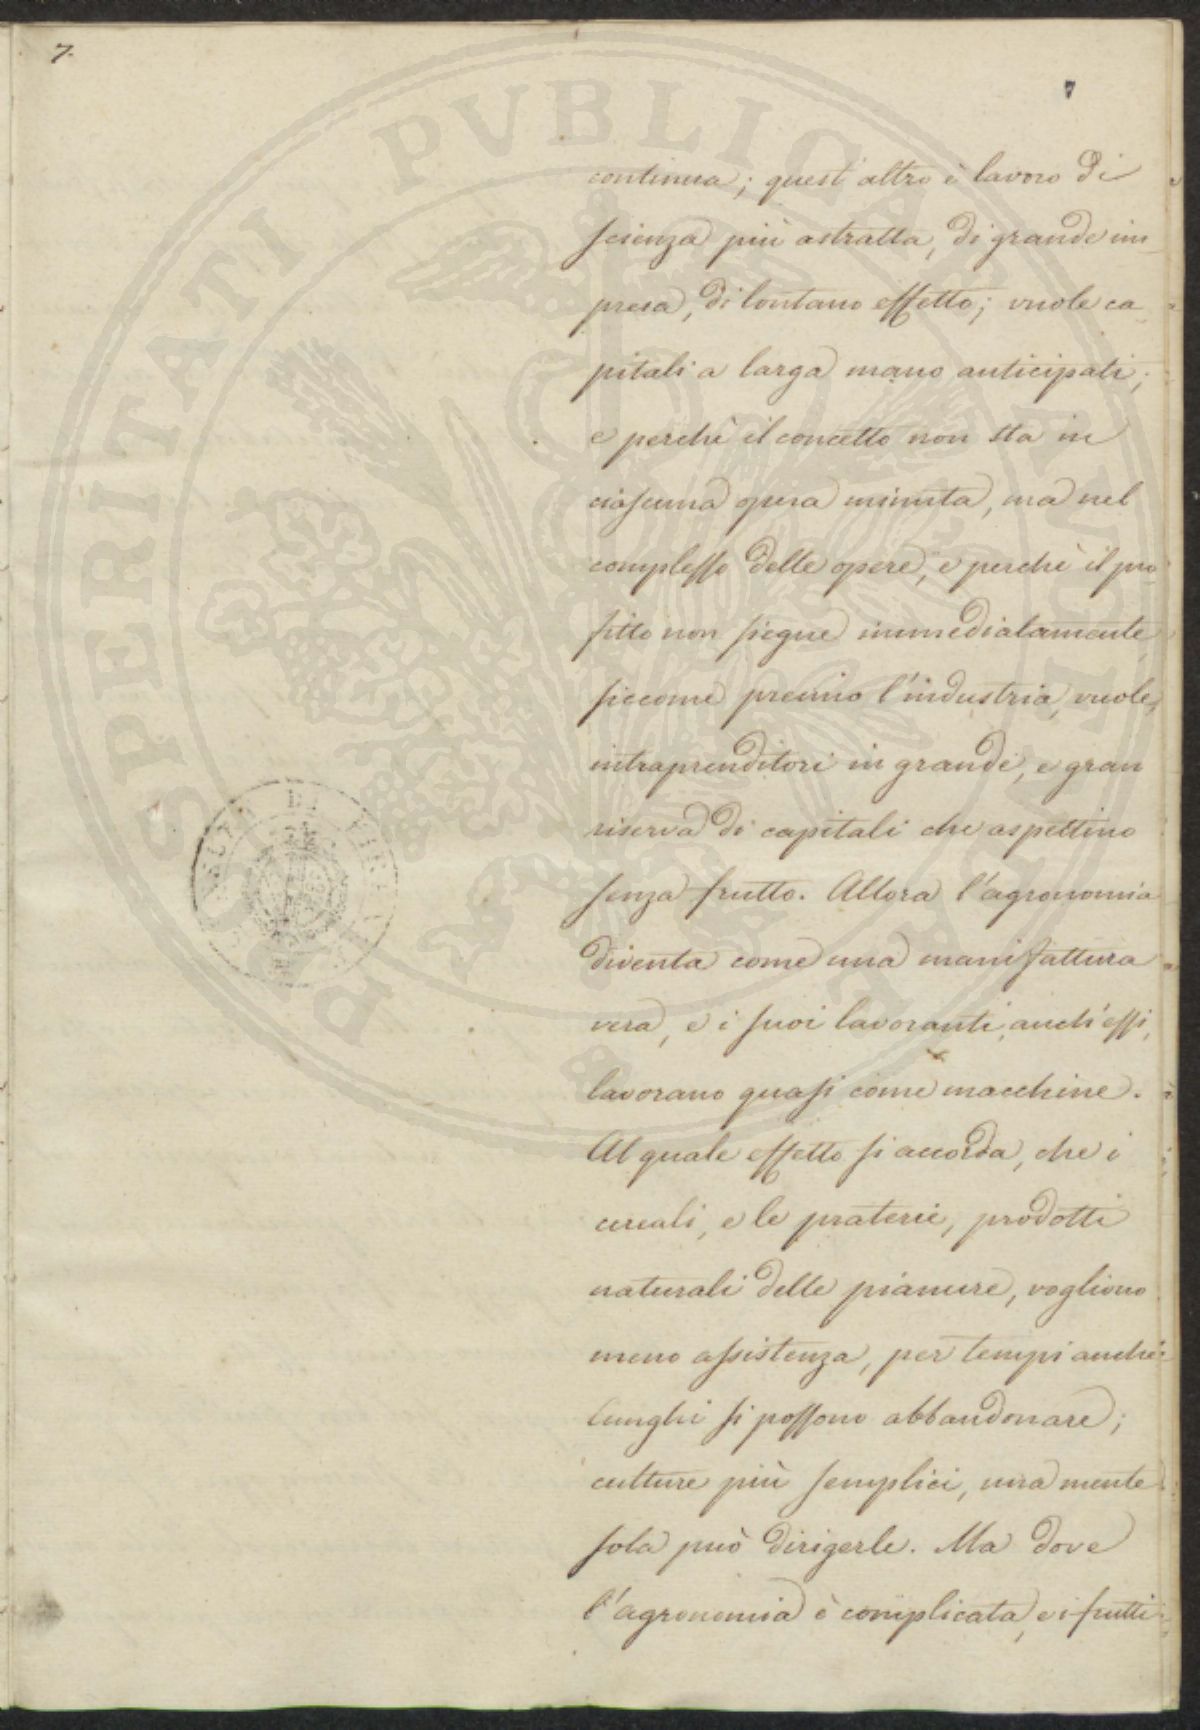 7.
7
continua; quest'altro è lavoro di
scienza più astratta, di grande im
presa, di lontano effetto; vuole ca
pitali a larga mano anticipati;
e perchè il concetto non sta in
ciascuna opera minuta, ma nel
complesso delle opere, e perchè il pro
fitto non siegue immediatamente
siccome premio l'industria, vuole
intraprenditori in grande, e gran
riserva di capitali che aspettino
senza frutto. Allora l'agronomia
diventa come una manifattura
vera, e i suoi lavoranti, anch'essi,
lavorano quasi come macchine.
Al quale effetto si accorda, che i
cereali, e le praterie, prodotti
naturali delle pianure, vogliono
meno assistenza, per tempi anche
lunghi si possono abbandonare;
culture più semplici, una mente
sola può dirigerle. Ma dove
l'agronomia è complicata, e i frutti
PROSPERITATI PVBLICAE